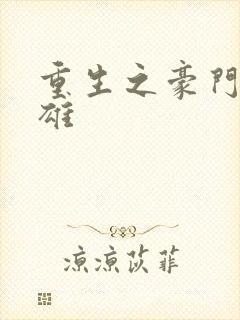 重生之豪門
雄
凉凉苡菲